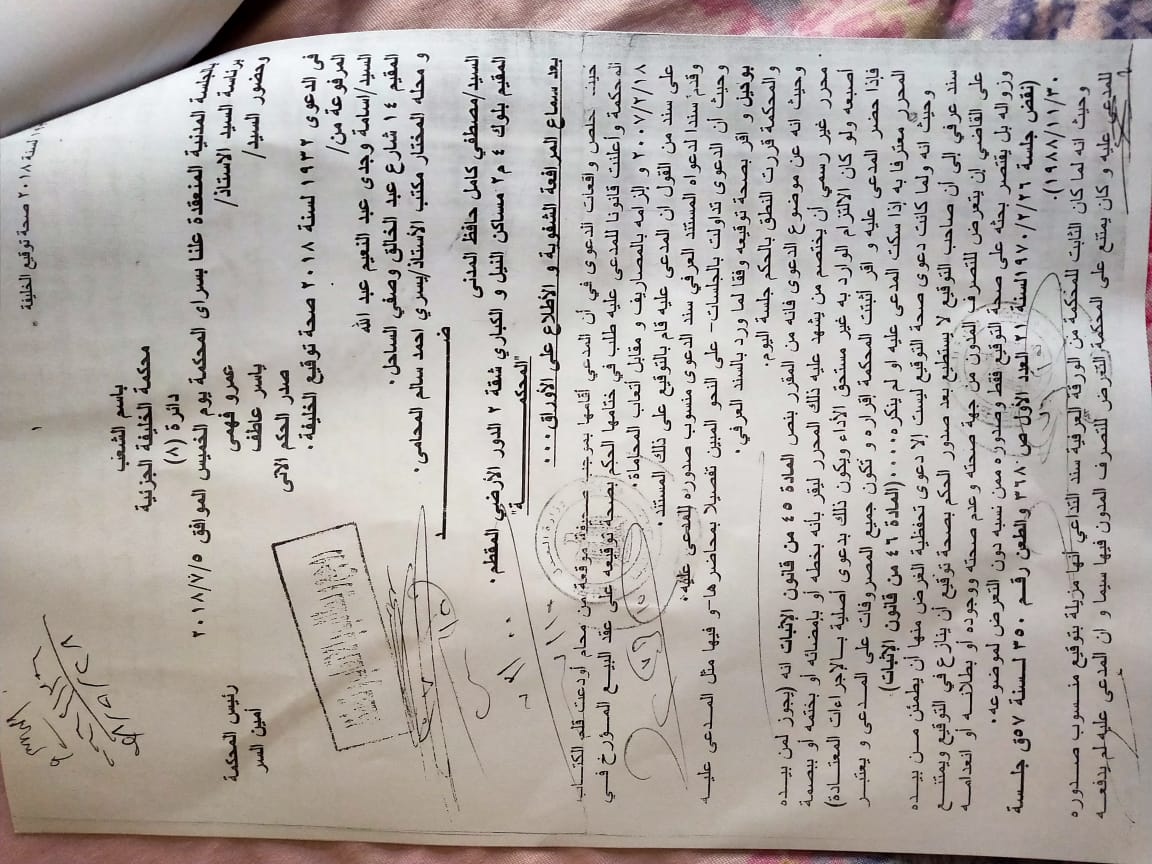 لسنة ٢٠١٨ صحة توقيع الخليفة
١
باسم الشعب
محكمة الخليفة الجزئية
دائرة (٨)
بالجلسة المدنية المنعقدة علنا بسراى المحكمة يوم الخميس الموافق ٢٠١٨/٧/٥
برئاسة السيد الاستاذ/ عمرو فهمى رئيس المحكمة
وحضور السيد/ ياسر عاطف أمين السر
صدر الحكم الاتى
فى الدعوى ١٩٣٢ لسنة ٢٠١٨ صحة توقيع الخليفة.
المرفوعة من/
السيد/اسامة وجدى عبد النعيم عبد الله
المقيم ١٤ شارع عبد الخالق وصفي الساحل.
و محله المختار مكتب الأستاذ/يسري احمد سالم المحامى.
ضــــد
السيد/مصطفي كامل حافظ المدنى
المقيم بلوك ٤ م٢ مساكن النيل و الكباري شقة ٢ الدور الأرضي المقطم.
"المحكمــــة"
بعد سماع المرافعة الشفوية و الأطلاع على الأوراق...
حيث تخلص واقعات الدعوى في أن المدعي أقامها بموجب صحيفة موقعة من محام أودعت قلم الكتاب
المحكمة وأعلنت قانونا للمدعي عليه طلب في ختامها الحكم بصحة توقيعه على عقد البيع المؤرخ في
٢٠٠٧/٢/١٨ و إلزامه بالمصاريف و مقابل أتعاب المحاماة.
على سند من القول ان المدعى عليه قام بالتوقيع على ذلك المستند.
وقدم سندا لدعواه المستند العرفي سند الدعوى منسوب صدوره للمدعى عليه.
وحيث أن الدعوى تداولت بالجلسات- على النحو المبين تفصيلا بمحاضرها-و فيها مثل المدعى عليه
بوكيل و اقر بصحة توقيعه وفقا لما ورد بالسند العرفي.
والمحكمة قررت النطق بالحكم جلسة اليوم.
وحيث انه عن موضوع الدعوى فانه من المقرر بنص المادة ٤٥ من قانون الإثبات انه (يجوز لمن بيده
محرر غير رسمي أن يختصم من يشهد عليه ذلك المحرر ليقر بأنه بخطه أو بإمضائه أو بختمه أو ببصمة
أصبعه ولو كان الالتزام الوارد به غير مستحق الأداء ويكون ذلك بدعوى أصلية بالإجراءات المعتادة)
فإذا حضر المدعى عليه و اقر أثبتت المحكمة إقراره و تكون جميع المصروفات على المدعى و يعتبر
المحرر معترفا به إذا سكت المدعى عليه او لم ينكره....(المادة ٤٦ من قانون الإثبات)
وحيث انه ولما كانت دعوى صحة التوقيع ليست إلا دعوى تحفظية الغرض منها أن يطمئن من بيده
سند عرفي إلى أن صاحب التوقيع لا يستطيع بعد صدور الحكم بصحة توقيع أن ينازع في التوقيع ويمتنع
على القاضي إن يتعرض للتصرف المدون من جهة صحته وعدم صحته ووجوده أو بطلانه أو انعدامه
وزواله بل يقتصر بحثه على صحة التوقيع فقط وصدوره ممن نسبه دون التعرض لموضوعه.
(نقض جلسة ١٩٧٠/٢/٢٦ لسنة ٢١ العدد الأول ص ٣٦٨ والطعن رقم ٣٥٠ لسنة ٥٧ق جلسة
١٩٨٨/١١/٣٠).
وحيث انه لما كان الثابت للمحكمة من الورقة العرفية سند التداعي أنها مزيلة بتوقيع منسوب صدوره
للمدعى عليه و كان يمتنع على المحكمة التعرض للتصرف المدون فيها سيما و ان المدعى عليه لم يدفعه